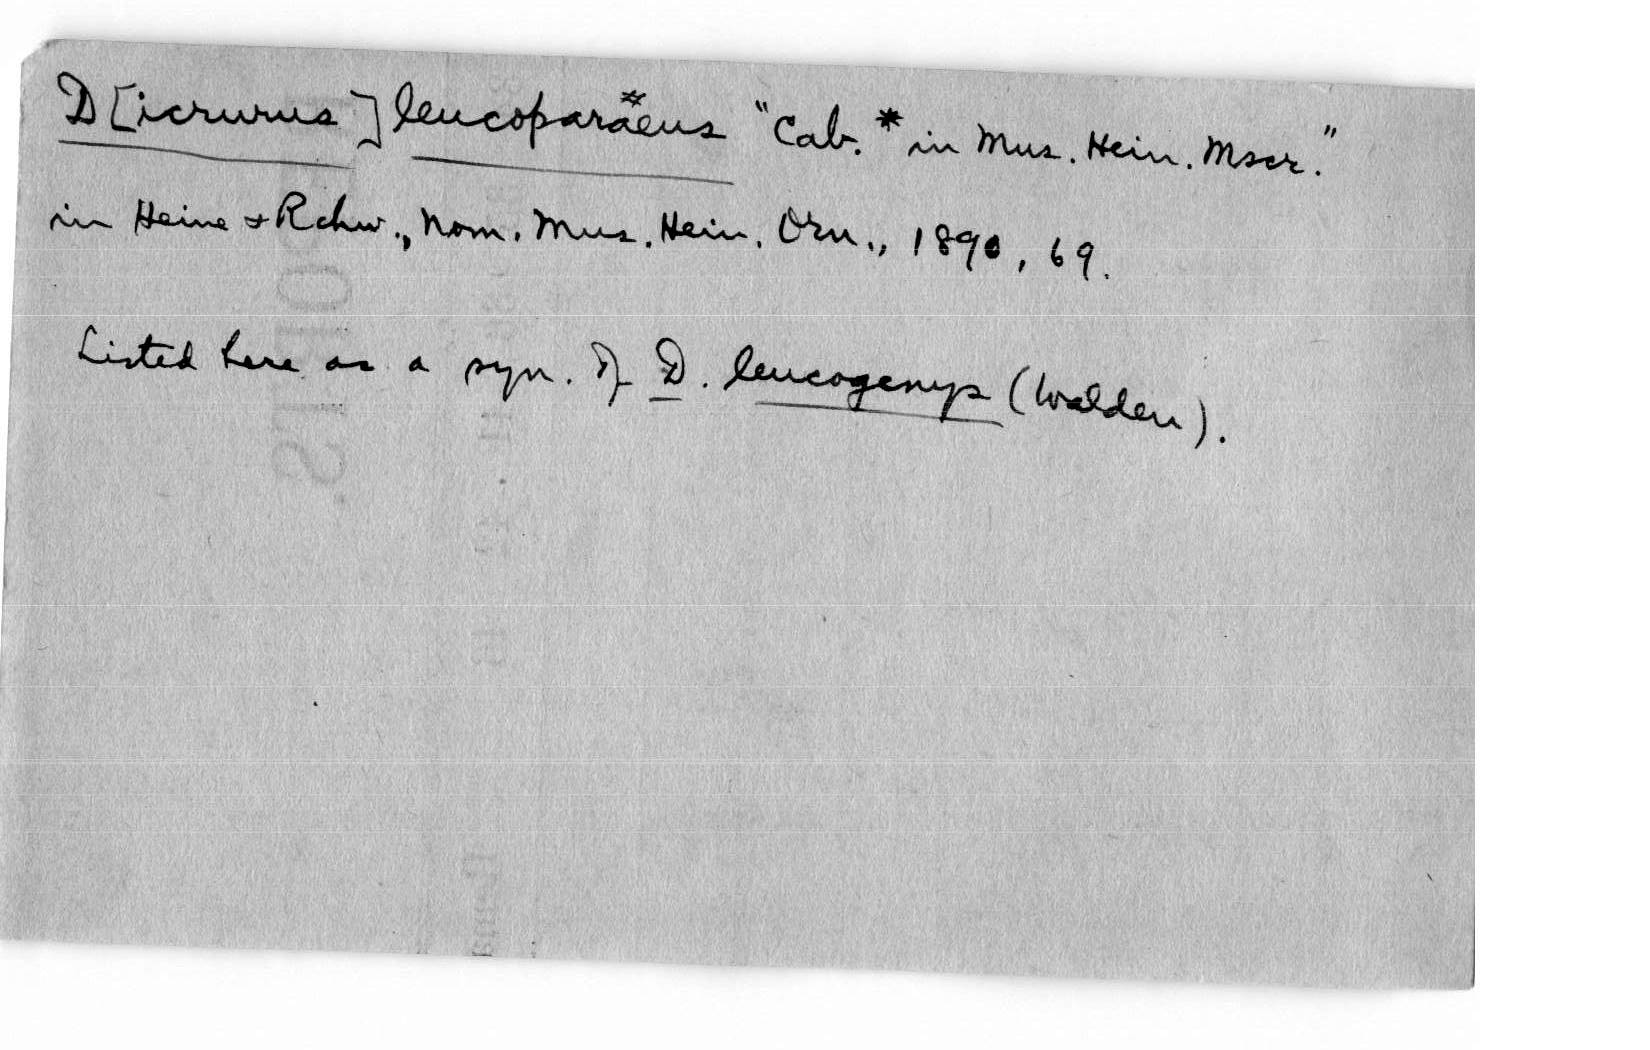 D[icrurus] leucoparaeus "Cab.* in Mus. Hein. Mscr."
in Heine & Rchw., Nom. Mus. Hein. Orn., 1890, 69.
Listed here as a syn. of D. leucogenys (Walden).